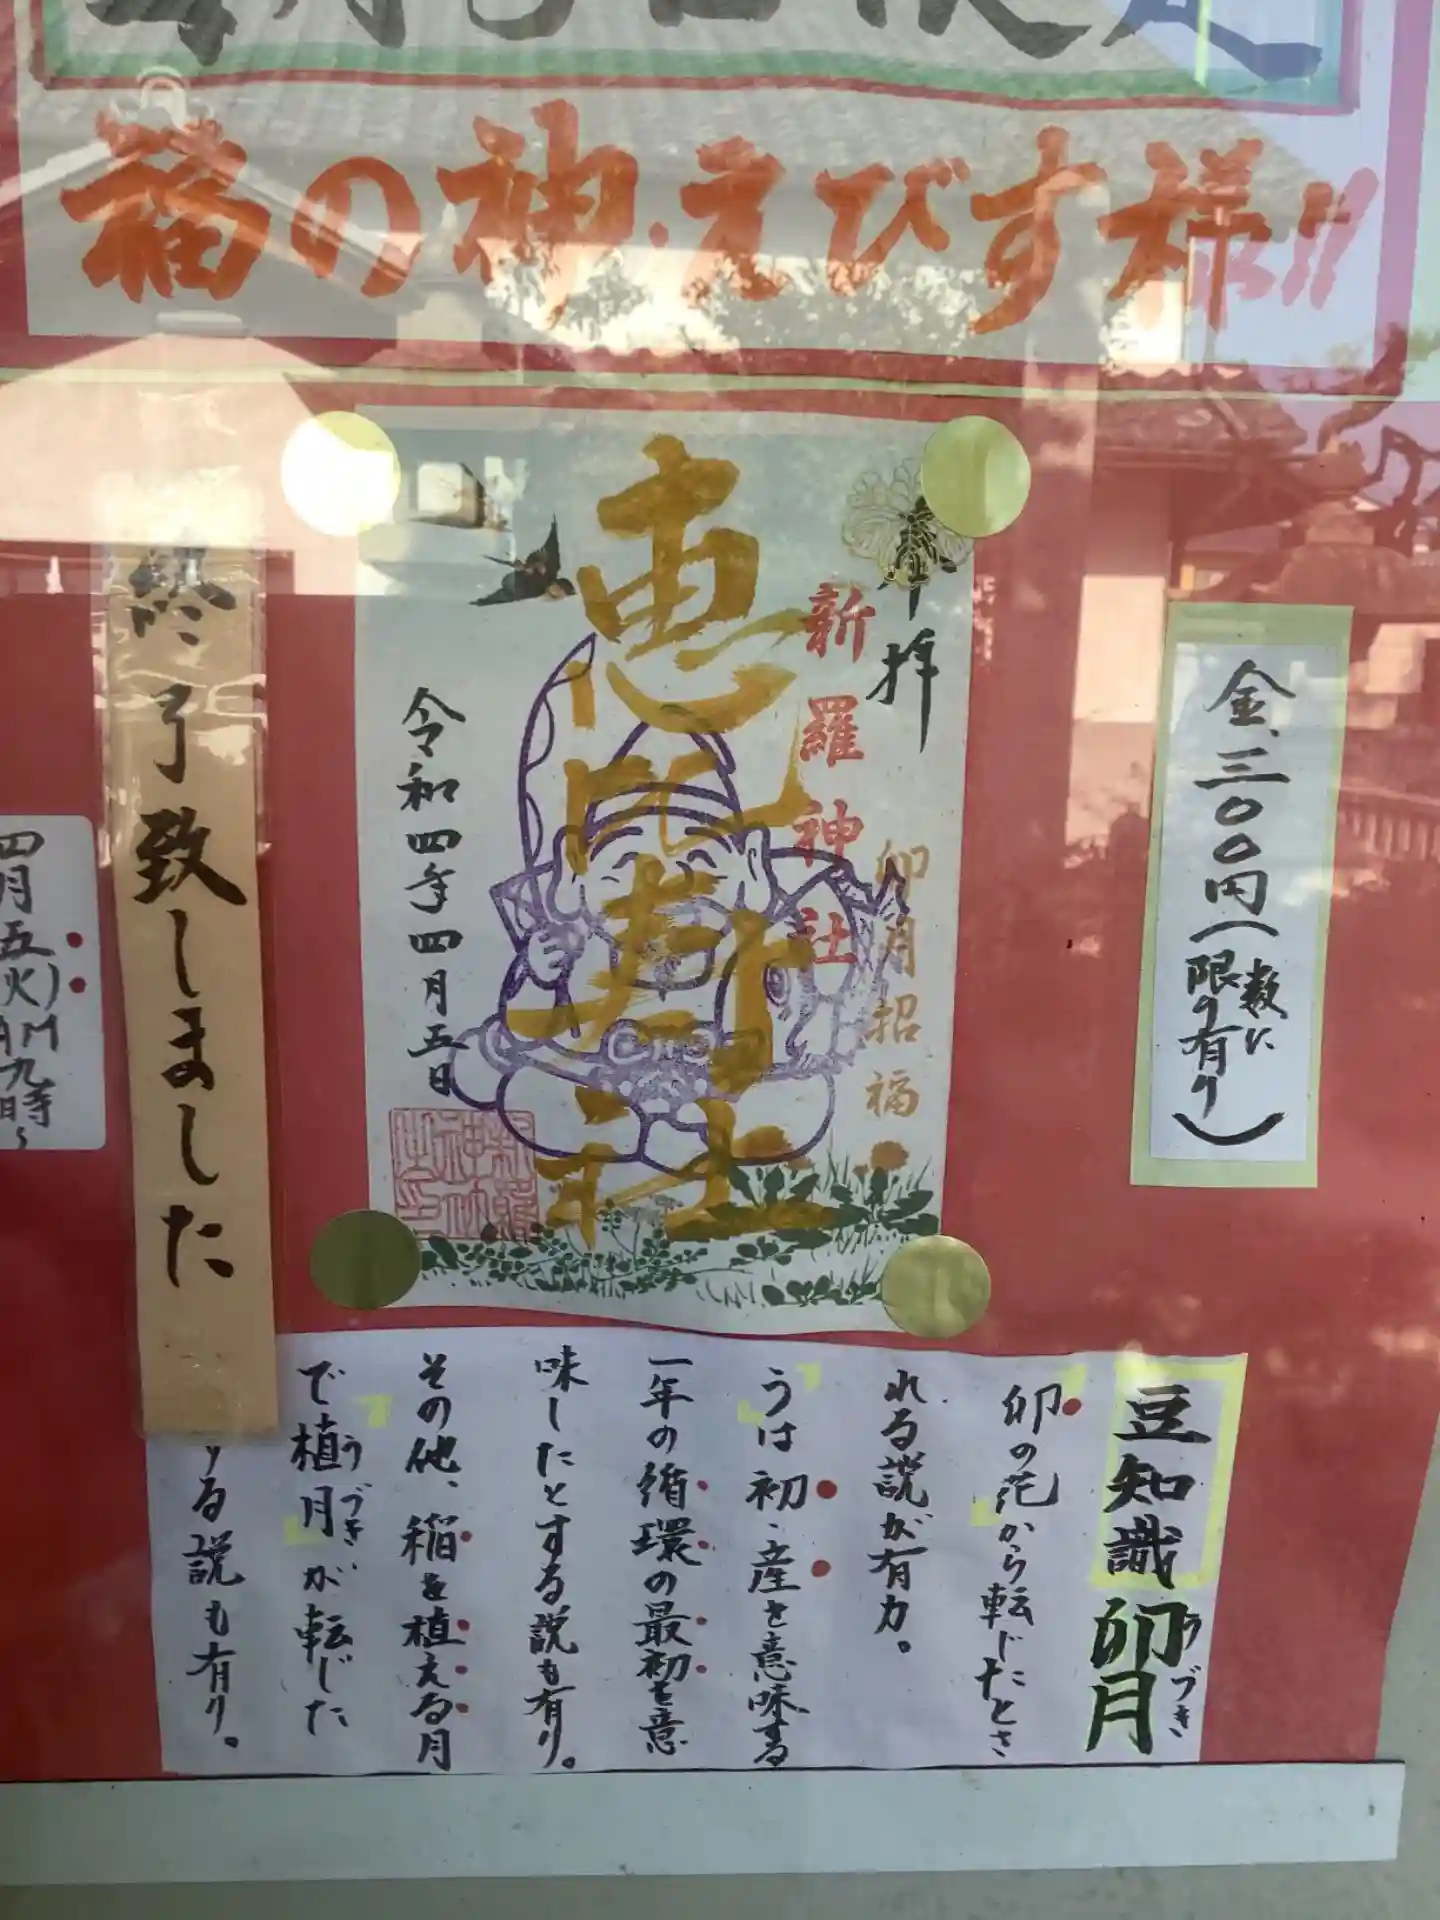 福の神・えびす様!!
金三〇〇円(数に
限り有り)
奉拝
卯月招福
新羅神社
恵比寿社
令和四年四月五日
終了致しました
四月五
(火)
AM
九時~
豆知識 卯月
うづき
卯の花から転じたとさ
れる説が有力。
うは初・産を意味する
一年の循環の最初を意
味したとする説も有り。
その他、稲を植える月
で植月が転じた
うづき
する説も有り。